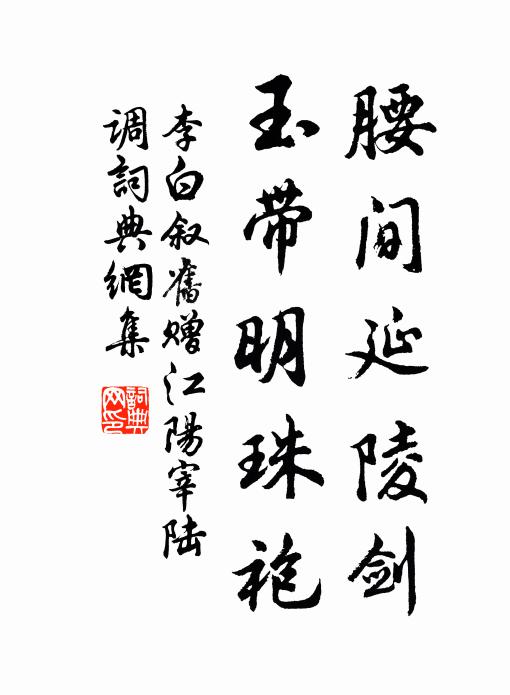 腰间延陵剑
玉带明珠袍
李白叙舊赠江陽宰陆
调詞典網集
詞典
网印